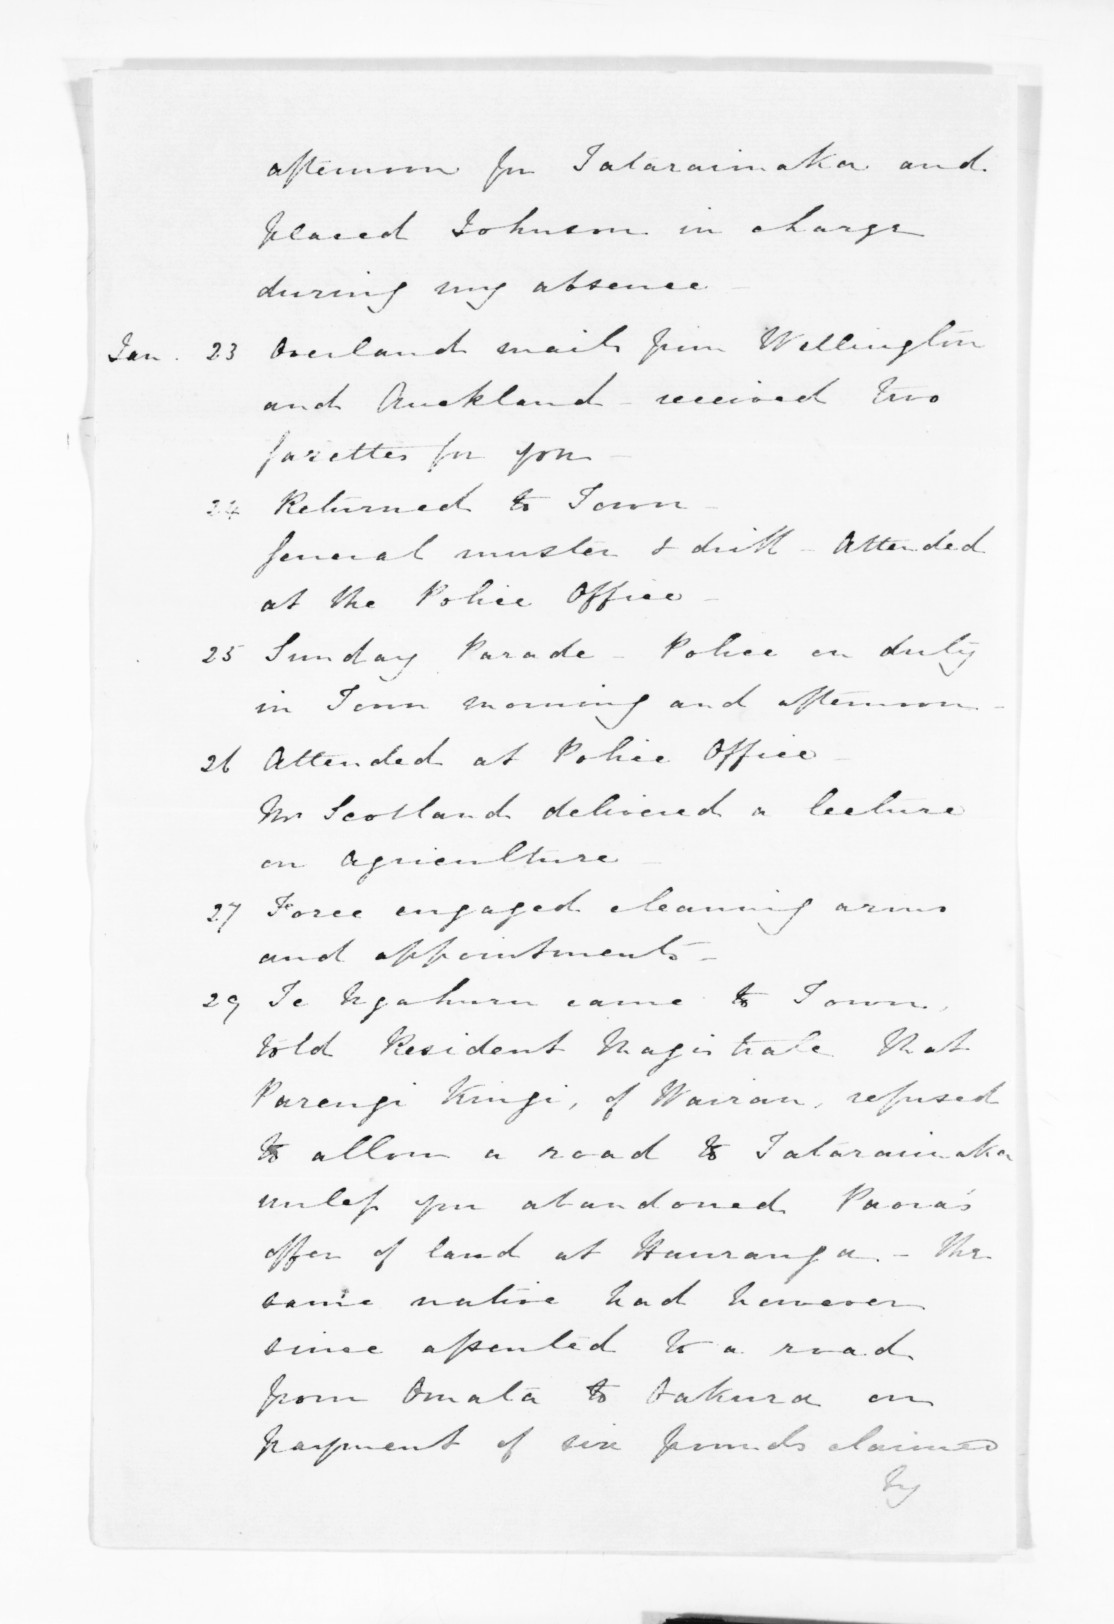 afternoon for Tataraimaka and
placed Johnson in charge
during my absence -
Jan. 23 Overland mails from Wellington
and Auckland - received two
Gazettes for you -
24 Returned to Town -
General muster & drill - Attended
at the Police Office -
25 Sunday Parade - Police on duty
in Town morning and afternoon -
26 Attended at Police Office -
Mr Scotland delivered a lecture
on Agriculture -
27 Force engaged cleaning arms
and appointments -
29 Te Ngahuru came to Town,
told Resident Magistrate that
Parengi Kingi, of Wairau, refused
to allow a road to Tataraimaka
unless you abandoned Paora's
offer of land at Hauranga. - The
same native had however
since assented to a road
from Omata to Oakura on
payment of six pounds claimed
by